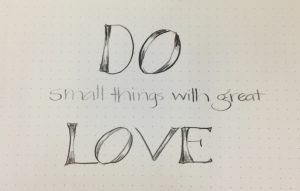 DO
small things with great
LOVE